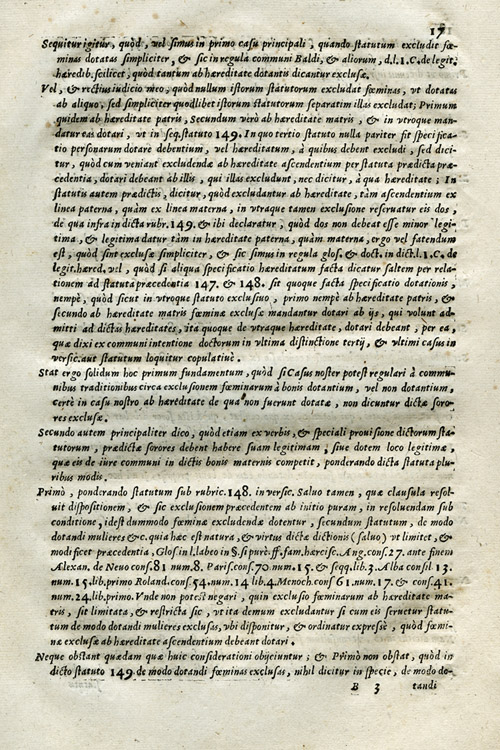 17
Sequitur igitur, quòd, vel simus in primo casu principali, quando statutum excludit fœ-
minas dotatas simpliciter, & sic in regula communi Baldi, & aliorum, d.l. 1. C. de legit.
hæredib. scilicet, quòd tantum ab hæreditate dotantis dicantur exclusæ.
Vel, & rectius iudicio meo, quòd nullum istorum statutorum excludat fœminas, vt dotatas
ab aliquo, sed simpliciter quodlibet istorum statutorum separatim illas excludat; Primum
quidem ab hæreditate patris, Secundum verò ab hæreditate matris, & in vtroque man-
datur eas dotari, vt in seq. statuto 149. In quo tertio statuto nulla pariter fit specifica-
tio personarum dotare debentium, vel hæreditatum, à quibus debent excludi, sed dici-
tur, quòd cum veniant excludendæ ab hæreditate ascendentium per statuta prædicta præ-
cedentia, dotari debeant ab illis, qui illas excludunt, nec dicitur, à qua hæreditate; In
statutis autem prædictis, dicitur, quòd excludantur ab hæreditate, tàm ascendentium ex
linea paterna, quàm ex linea materna, in vtraque tamen exclusione reseruatur eis dos,
de qua infra in dicta rubr. 149. & ibi declaratur, quòd dos non debeat esse minor legi-
tima, & legitima datur tàm in hæreditate paterna, quàm materna, ergo vel fatendum
est, quòd sint exclusæ simpliciter, & sic simus in regula glos. & doct. in dict. l. 1. C. de
legit. hæred. vel, quòd si aliqua specificatio hæreditatum facta dicatur saltem per rela-
tionem ad statuta præcedentia 147. & 148. sit quoque facta specificatio dotationis,
nempè, quòd sicut in vtroque statuto exclusiuo, primo nempè ab hæreditate patris, &
secundo ab hæreditate matris fœminæ exclusæ mandantur dotari ab ijs, qui volunt ad-
mitti ad dictas hæreditates, ita quoque de vtraque hæreditate, dotari debeant, per ea,
quæ dixi ex communi intentione doctorum in vltima distinctione tertij, & vltimi casus in
versic. aut statutum loquitur copulatiuè.
Stat ergo solidum hoc primum fundamentum, quòd si Casus noster potest regulari à commu-
nibus traditionibus circa exclusionem fœminarum à bonis dotantium, vel non dotantium,
certè in casu nostro ab hæreditate de qua non fuerunt dotatæ, non dicuntur dictæ soro-
res exclusæ.
Secundo autem principaliter dico, quòd etiam ex verbis, & speciali prouisione dictorum sta-
tutorum, prædictæ sorores debent habere suam legitimam; siue dotem loco legitimæ,
quæ eis de iure communi in dictis bonis maternis competit, ponderando dicta statuta plu-
ribus modis.
Primò, ponderando statutum sub rubric. 148. in versic. Saluo tamen, quæ clausula resol-
uit dispositionem, & sic exclusionem præcedentem ab initio puram, in resoluendam sub
conditione, idest dummodo fœminæ excludendæ dotentur, secundum statutum, de modo
dotandi mulieres &c. quia hæc est natura, & virtus dictæ dictionis (saluo) vt limitet, &
modificet præcedentia. Glos. in l. labeo in §. si purè. ff. fam. hercisc. Ang. cons. 27. ante finem
Alexan. de Neuo cons. 81 num. 8. Paris. cons. 70. num. 15. & seqq. lib. 3. Alba consil. 13.
num. 15. lib. primo Roland. cons. 54. num. 14 lib. 4. Menoch. cons 61. num. 17. & cons. 41.
num. 24. lib. primo. Vnde non potest negari, quin exclusio fœminarum ab hæreditate ma-
tris, sit limitata, & restricta sic, vt ita demum excludantur si cum eis seruetur statu-
tum de modo dotandi mulieres exclusas, vbi disponitur, & ordinatur expressè, quòd fœmi-
næ exclusæ ab hæreditate ascendentium debeant dotari.
Neque obstant quædam quæ huic considerationi obijciuntur; & Primò non obstat, quòd in
dicto statuto 149. de modo dotandi fœminas exclusas, nihil dicitur in specie, de modo do-
B 3 tandi